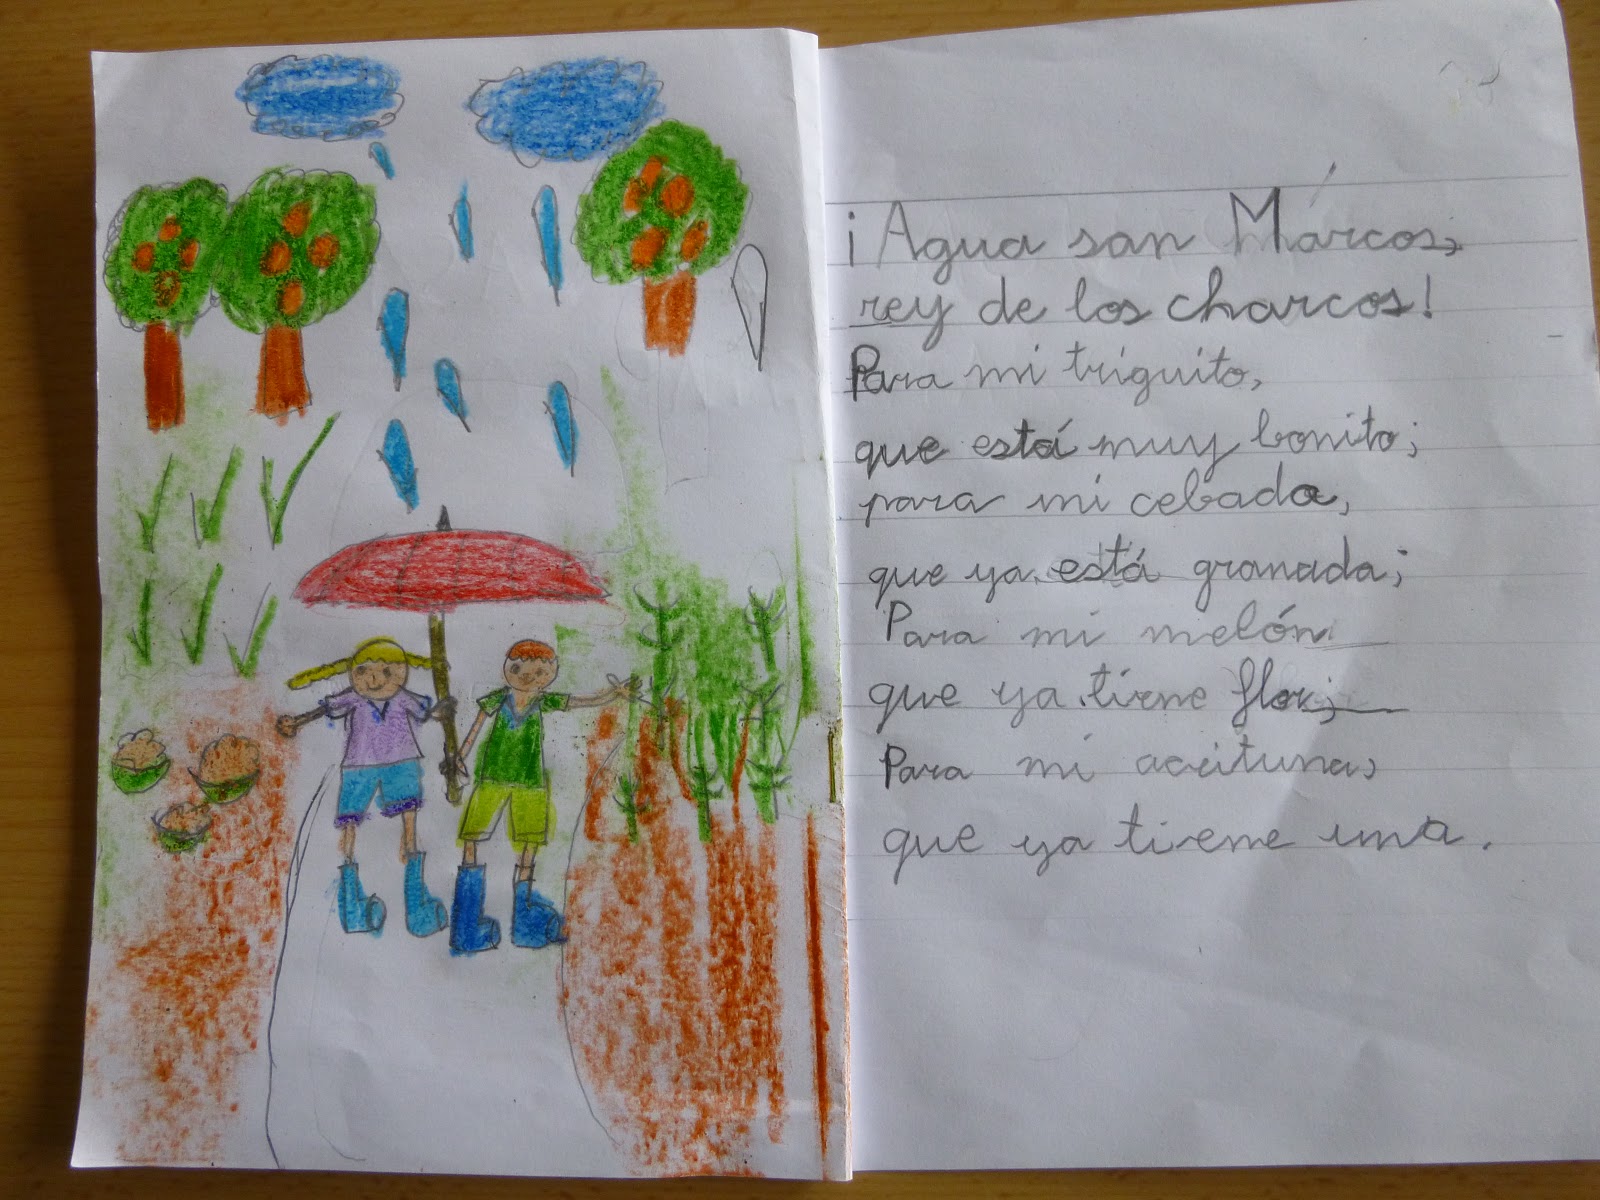 ¡Agua san Márcos,
rey de los charcos!
Para mi triguito,
que está muy bonito;
para mi cebada,
que ya está granada;
Para mi melón
que ya tiene flor;
Para mi aceituna,
que ya tiene una.